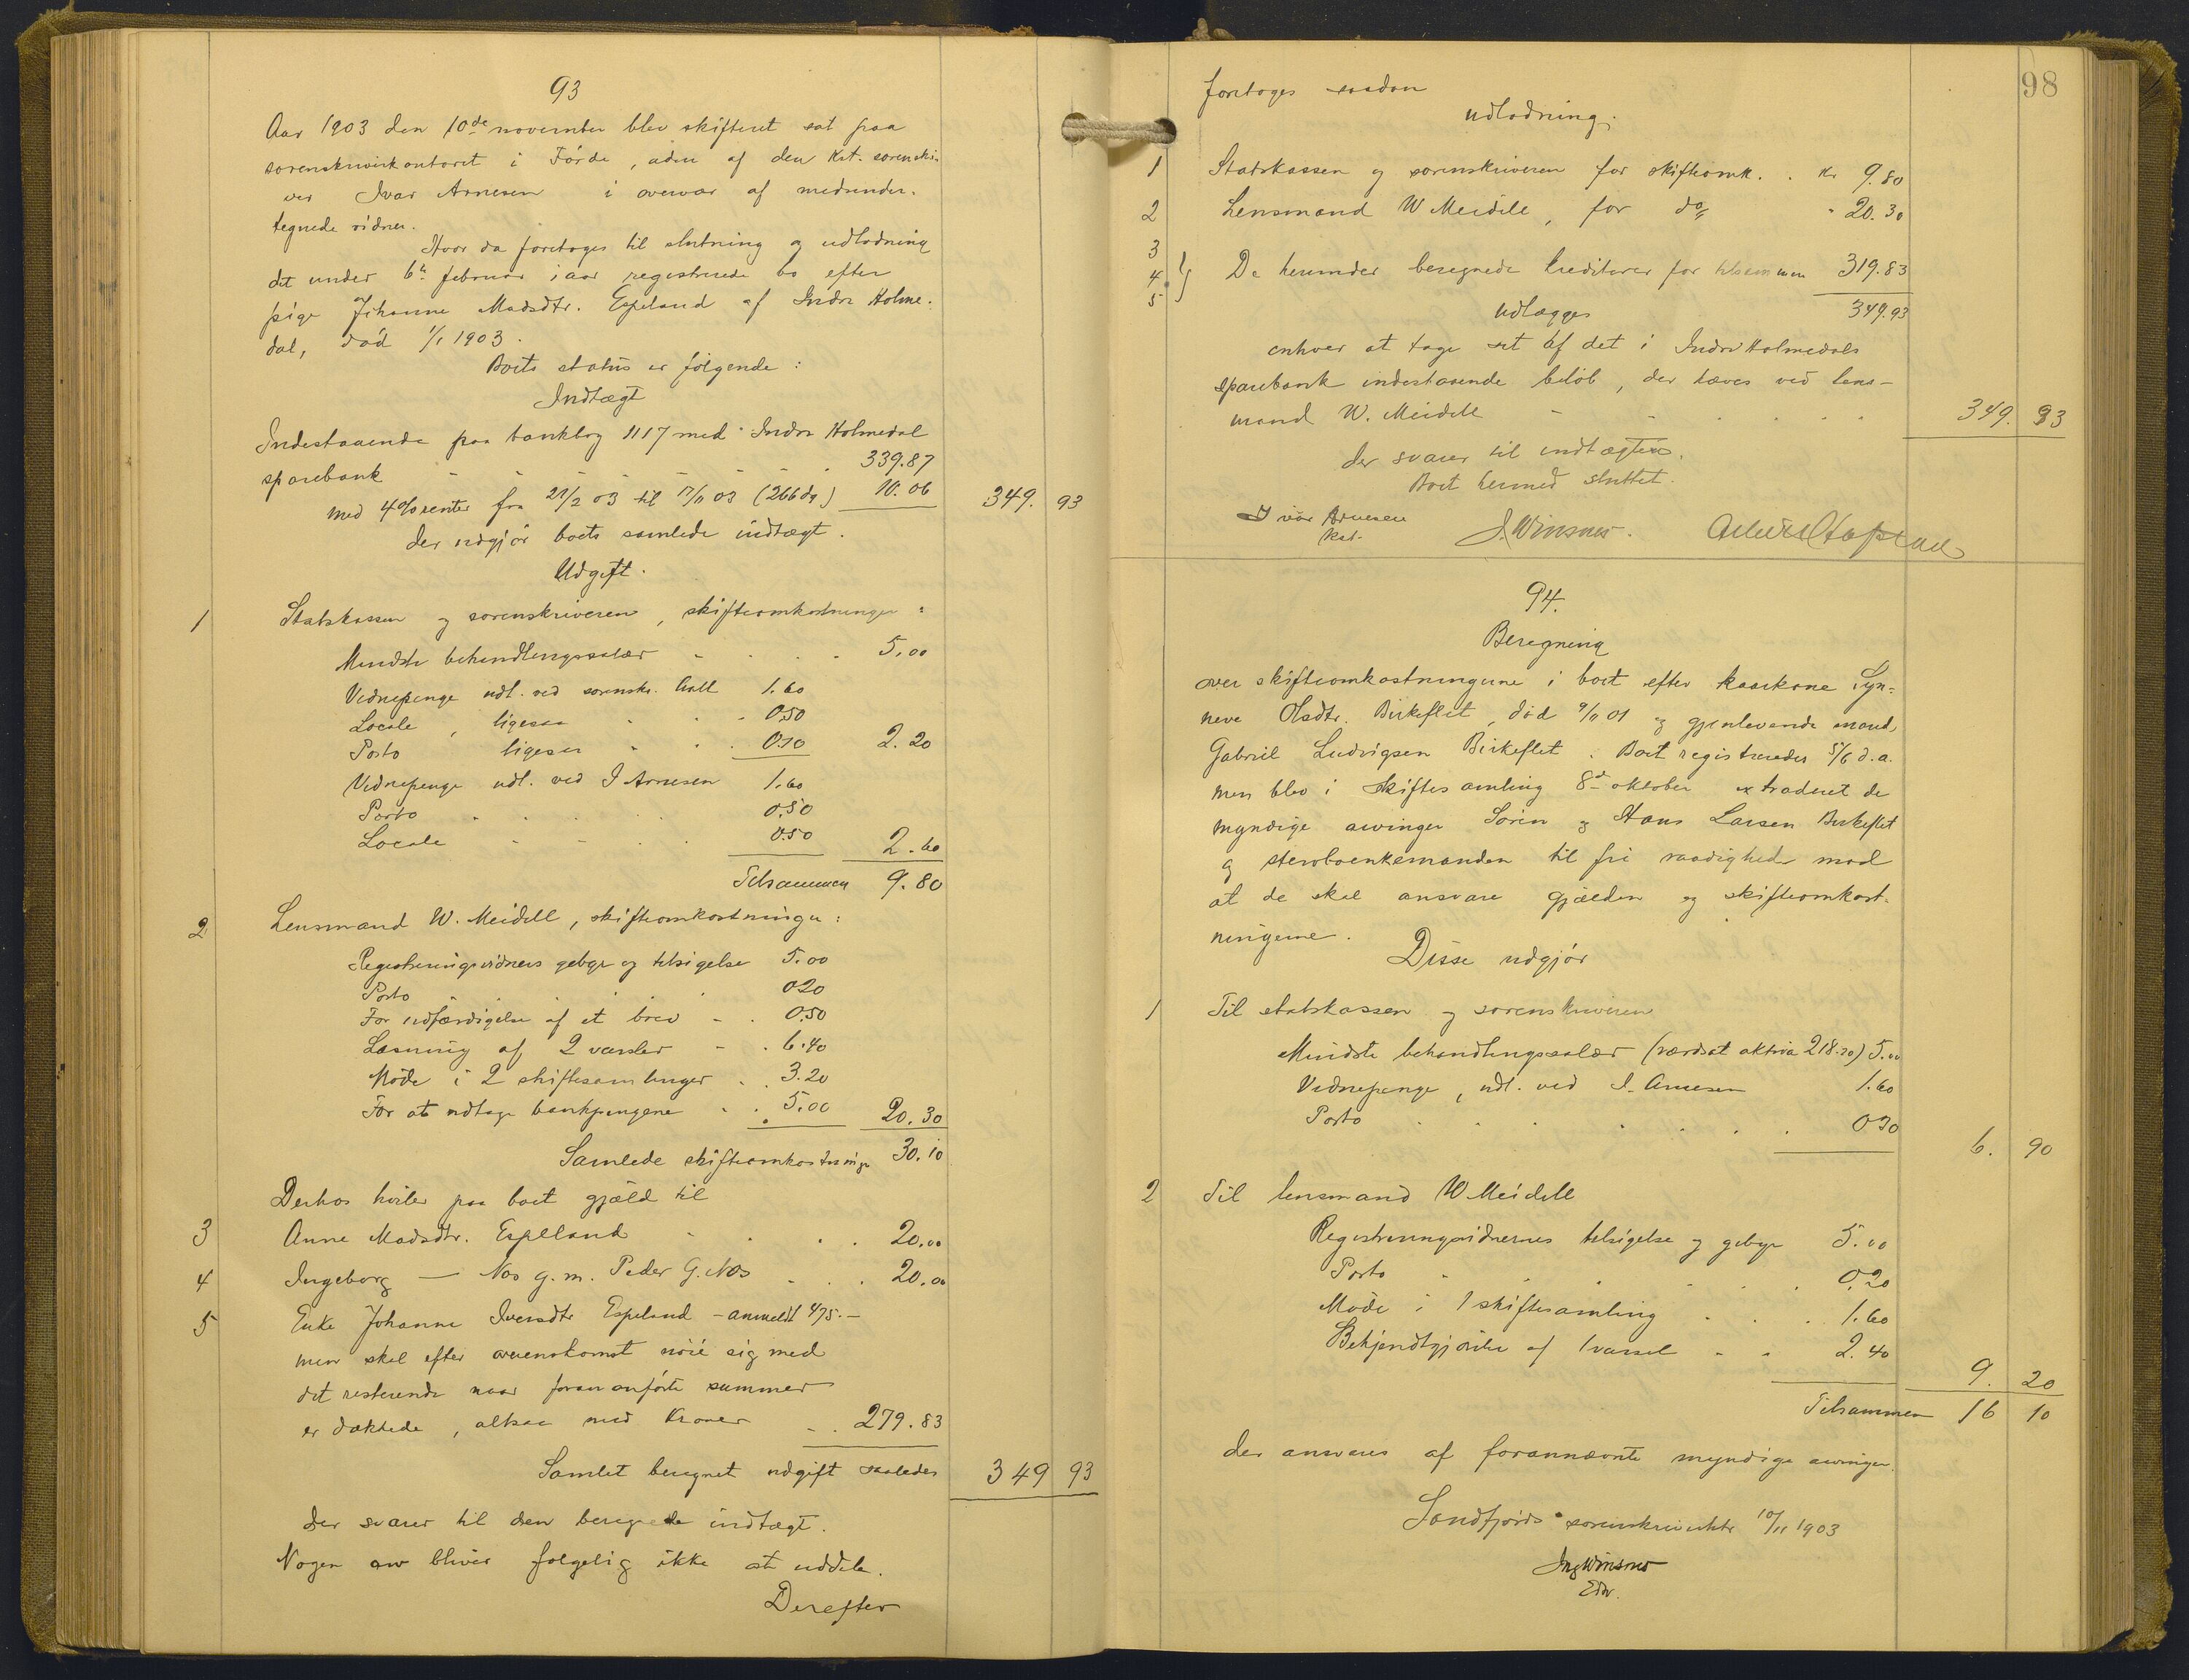 93
Aar 1903 den 10de november blev skifteret sat paa
sorenskriverkontoret i Førde, aden af den Kst. sorenskri-
ver Ivar Arnesen i overvær af medunder-
tegnede vidner.
Hvor da foretoges til slutning og udlodning
det under 6te februar i aar registrerede bo efter
pige Johanne Madsdtr. Espeland af Indre Holme-
dal, død 1/1 1903.
Boets status er følgende:
Indtægt
Indestaaende paa bankbog 1117 med Indre Holmedal
sparebank - - - - - - . 339.87
med 4% renter fra 21/2 03 til 17/11 03 (266 dg) 10.06 349. 93
der udgjør boets samlede indtægt.
Udgift.
1 Statskassen og sorenskriveren, skifteomkostninger:
Mindste behandlingssalær - . . - 5.00
Vidnepenge udl. ved sorenskr. 1.60
Locale, ligesaa - . . 0.50
Porto ligesaa - . . 0.10 2.20
Vidnepenge udl. ved I Arnesen 1.60
Porto . . . . 0.50
Locale - - . . 0.50 2.60
Tilsammen 9.80
2 Lensmand W. Meidell, skifteomkostninger:
Registreringsvidners gebyr og tilsigelse 5.00
Porto . . . 0.20
For udfærdigelse af et brev - . 0.50
Læsning af 2 varsler - . 6.40
Møde i 2 skiftesamlinger . . 3.20
For at udtage bankpengene . . 5.00 20.30
Samlede skifteomkostninger 30.10
Derhos hviler paa boet gjæld til
3 Anne Madsdtr. Espeland . . . . 20.00
4 Ingeborg — Nos g.m. Peder G. Nos . . . 20.00
5 Enke Johanne Iversdtr Espeland - anmeldt 475.-
men skal efter overenskomst nøie sig med
det resterende naar foran anførte summer
er dækkede, altsaa med Kroner - . 279.83
Samlet beregnet udgift saaledes 349 93
der svarer til den beregnede indtægt.
Nogen arv bliver følgelig ikke at uddele.
Derefter
98
foretoges saadan
udlodning.
1 Statskassen og sorenskriveren for skifteomk. . Kr 9.80
2 Lensmand W Meidell, for do " 20.30
3
4 } De herunder beregnede kreditorer for tilsammen 319.83
5
udlægges 349.93
enhver at tage ret af det i Indre Holmedals
sparebank indestaaende beløb, der hæves ved lens-
mand W. Meidell - - . . . . 349. 93
der svarer til indtægten.
Boet hermed sluttet.
Ivar Arnesen J. Winsnes.
Kst.
94.
Beregning
over skifteomkostningerne i boet efter kaarkone Syn-
neve Olsdtr. Birkeflet, død 9/11 01 og gjenlevende mand
Gabriel Ludvigsen Birkeflet. Boet registreredes 5/6 d.a.
men blev i skiftesamling 8de oktober extraderet de
myndige arvinger Søren og Hans Larsen Birkeflet
og stervboenkemanden til fri raadighed mod
at de skal ansvare gjælden og skifteomkost-
ningerne.
Disse udgjør
1 Til statskassen og sorenskriveren
Mindste behandlingssalær (værdsat aktiva 218.20) 5.00
Vidnepenge, udl. ved I. Arnesen 1.60
Porto . . . . . . . 0.30
6. 90
2 Til lensmand W Meidell
Registreringsvidnernes tilsigelse og gebyr 5.00
Porto . . . . . . 0.20
Møde i 1 skiftesamling . . . 1.60
Bekjendtgjørelse af 1 varsel - - 2.40
9. 20
Tilsammen 16 10
der ansvares af forannævnte myndige arvinger.
Søndfjords sorenskriverktr 10/11 1903
Ing Winsnes
Edv.